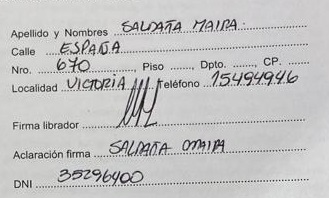 Apellido y Nombres SALDAÑA MAIRA
Calle ESPAÑA
Nro. 670 Piso Dpto. CP.
Localidad VICTORIA Teléfono 15494946
Firma librador
Aclaración firma SALDAÑA OMAIRA
DNI 35296400